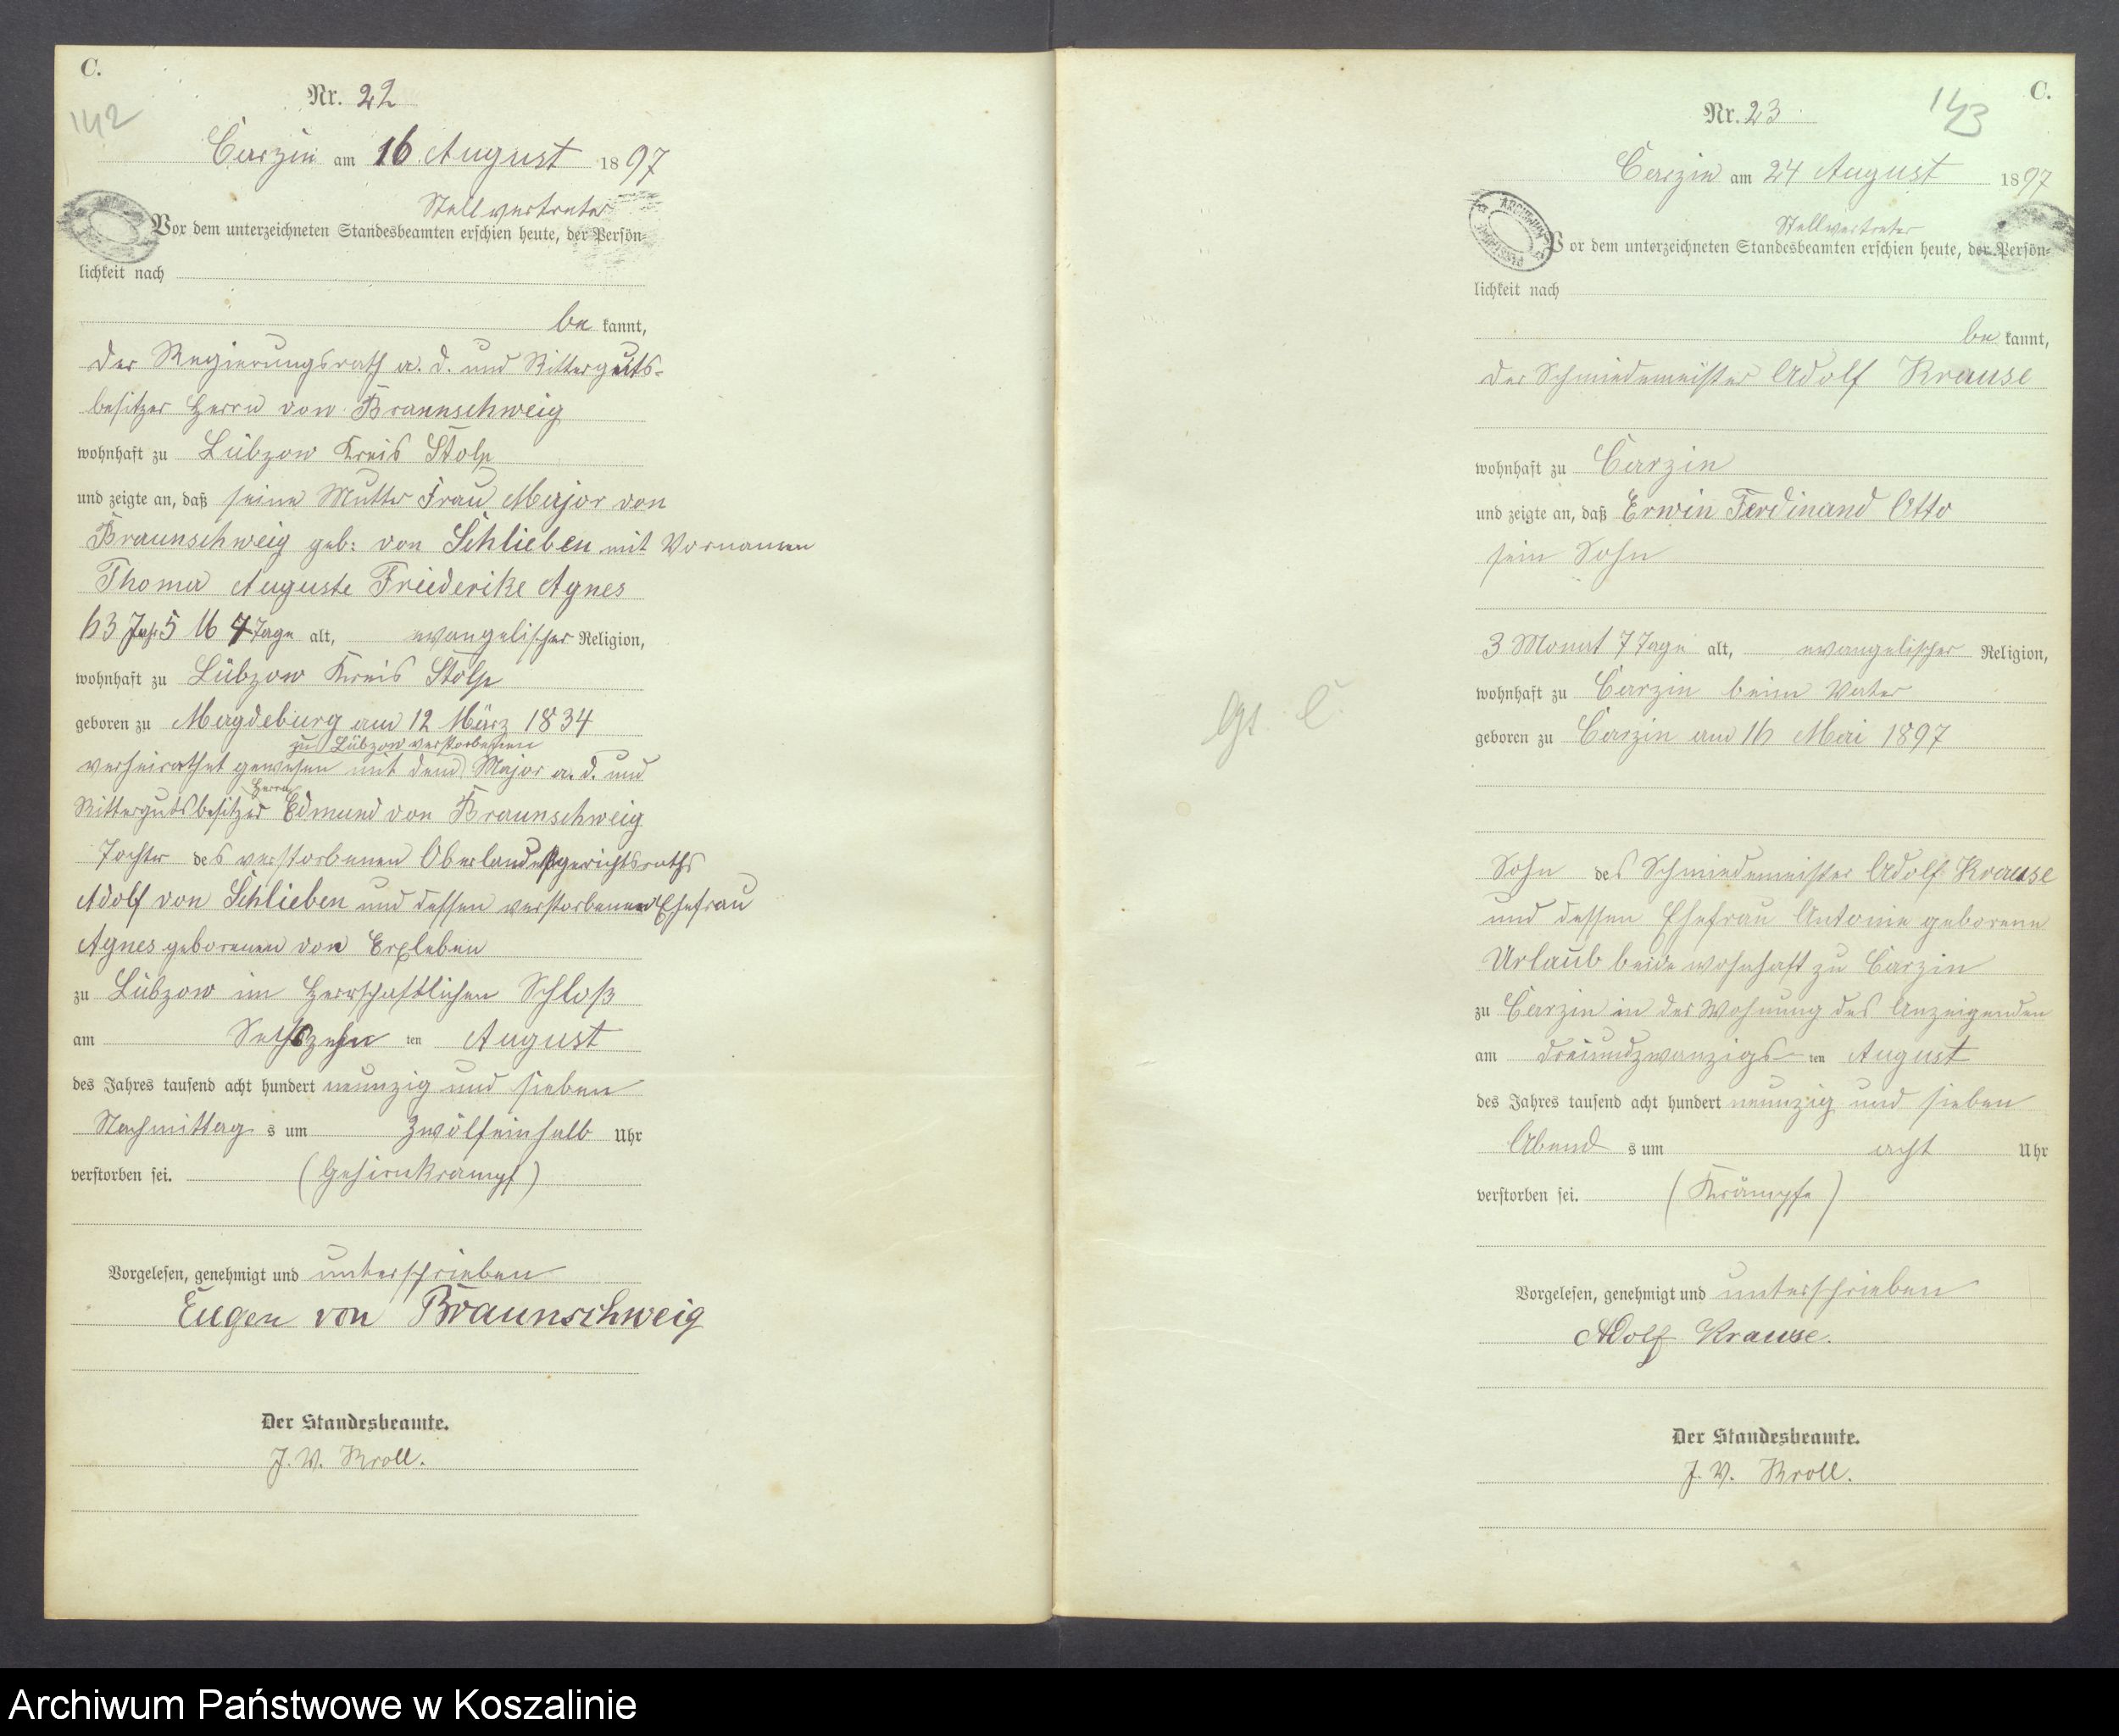 C.
142
Nr. 22
Carzin am 16. August 1897
Stellvertreter
Vor dem unterzeichneten Standesbeamten erschien heute, der Persön-
lichkeit nach
be kannt,
der Regierungsrath a. d. und Ritterguts-
besitzer Herrn von Braunschweig
wohnhaft zu Lübzow Kreis Stolp
und zeigte an, daß seine Mutter Frau Major von
Braunschweig geb: von Schlieben mit Vornamen
Thoma Auguste Friederike Agnes
63 Jahr 5 M 4 Tage alt, evangelischer Religion,
wohnhaft zu Lübzow Kreis Stolp
geboren zu Magdeburg am 12 März 1834
zu Lübzow verstorbenen
verheirathet gewesen mit dem Major a. d. und
Herrn
Rittergutsbesitzer Edmund von Braunschweig
Tochter des verstorbenen Oberlandesgerichtsraths
Adolf von Schlieben und dessen verstorbenen Ehefrau
Agnes geborenen von Erxleben
zu Lübzow im Herrschaftlichen Schloß
am Sechszehn ten August
des Jahres tausend acht hundert neunzig und sieben
Nachmittag s um Zwölfeinhalb Uhr
verstorben sei. (Gehirnkrampf)
Vorgelesen, genehmigt und unterschrieben
Eugen von Braunschweig
Der Standesbeamte.
J. V. Kroll.
C.
143
Nr. 23
Carzin am 24 August 1897
Stellvertreter
Vor dem unterzeichneten Standesbeamten erschien heute, der Persön-
lichkeit nach
be kannt,
der Schmiedemeister Adolf Krause
wohnhaft zu Carzin
und zeigte an, daß Erwin Ferdinand Otto
sein Sohn
3 Monat 7 Tage alt, evangelischer Religion,
wohnhaft zu Carzin beim Vater
geboren zu Carzin am 16 Mai 1897
Sohn des Schmiedemeister Adolf Krause
und dessen Ehefrau Antonie geborene
Urlaub beide wohnhaft zu Carzin
zu Carzin in der Wohnung des Anzeigenden
am dreiundzwanzigs ten August
des Jahres tausend acht hundert neunzig und sieben
Abend s um acht Uhr
verstorben sei. (Krämpfe)
Vorgelesen, genehmigt und unterschrieben
Adolf Krause.
Der Standesbeamte.
J. V. Kroll.
Archiwum Państwowe w Koszalinie